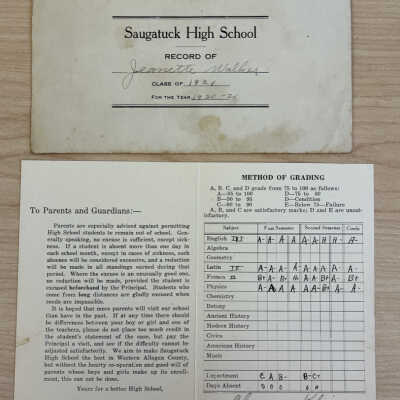 Saugatuck High School
RECORD OF
Jeanette Walker
CLASS OF 1921
FOR THE YEAR 1920-21
To Parents and Guardians:—
Parents are especially advised against permitting
High School students to remain out of school. Gen-
erally speaking, no excuse is sufficient, except sick-
ness. If a student is absent more than one day in
each school month, except in cases of sickness, such
absences will be considered excessive, and a reduction
will be made in all standings earned during that
period. Where the excuse is an unusually good one,
no reduction will be made, provided the student is
excused beforehand by the Principal. Students who
come from long distances are gladly excused when
roads are impassible.
It is hoped that more parents will visit our school
than have in the past. If at any time there should
be differences between your boy or girl and one of
the teachers, please do not place too much credit in
the student's statement of the case, but pay the
Principal a visit, and see if the difficulty cannot be
adjusted satisfactorily. We aim to make Saugatuck
High School the best in Western Allegan County,
but without the hearty co-operation and good will of
parents whose boys and girls make up its enroll-
ment, this can not be done.
Yours for a better High School,
METHOD OF GRADING
A, B, C, and D grade from 75 to 100 as follows:
A—95 to 100 D—75 to 80
B—90 to 95 D—Condition
C—80 to 90 E—Below 75—Failure
A, B, and C are satisfactory marks; D and E are unsat-
isfactory.
Subject First Semester Second Semester Credit
English III A- A- A A A- A- A-
Algebra
Geometry
Latin II A- A- A- A- A- A A- A-
French II B+ A- A- A- A- B+
Physics A- A A- A- A A- B+ A- A-
Chemistry
Botany
Ancient History
Modern History
Civics
American History
Music
Deportment C A B- B- C+
Days Absent 0 0 0